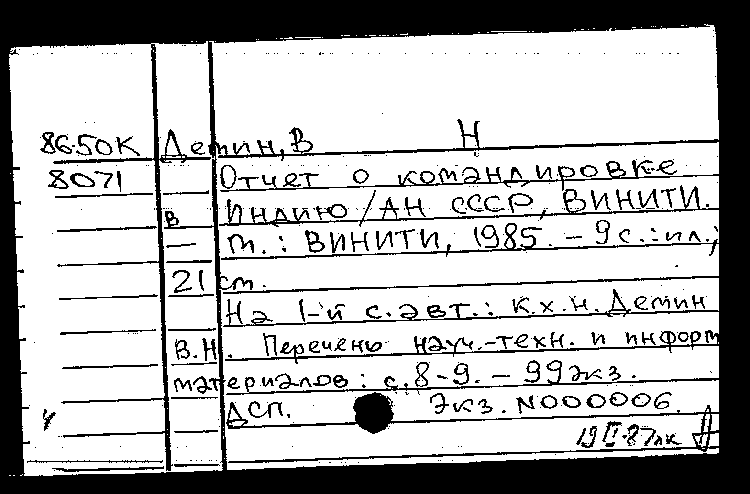 86.50К Демин, В Н
8071 Отчет о командировке
в Индию / АН СССР, ВИНИТИ.
— м. : ВИНИТИ, 1985. – 9 с. : ил.;
21 см.
На 1-й с. авт.: к.х.н. Демин
В.Н. Перечень науч.-техн. и информ
материалов: с. 8-9. – 99 экз.
ДСП. Экз. N000006.
ч
19 II-87лк